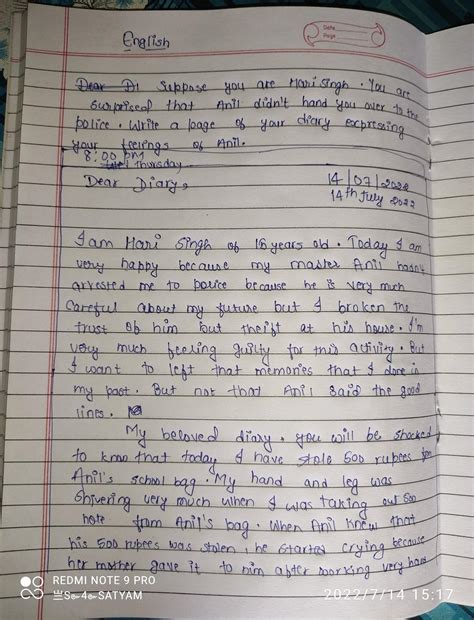 English
Date
Page
Dear D1 Suppose you are Hari Singh. You are
surprised that Anil didn't hand you over to the
police. Write a page of your diary expressing
your feelings of Anil.
8:00 PM
Thursday
Dear Diary,
14/07/2022
14th July 2022
I am Hari Singh of 16 years old. Today I am
very happy because my master Anil hadn't
arrested me to police because he is very much
careful about my future but I broken the
trust of him but theift at his house. I'm
very much feeling guilty for this activity. But
I want to left that memories that I done in
my past. But not that Anil said the good
lines.
My beloved diary. you will be shocked
to know that today I have stole 500 rupees from
Anil's school bag. My hand and leg was
shivering very much when I was taking out 500
note from Anil's bag. When Anil knew that
his 500 rupees was stolen, he started crying because
her mother gave it to him after working very hard
REDMI NOTE 9 PRO
SATYAM
2022/7/14 15:17